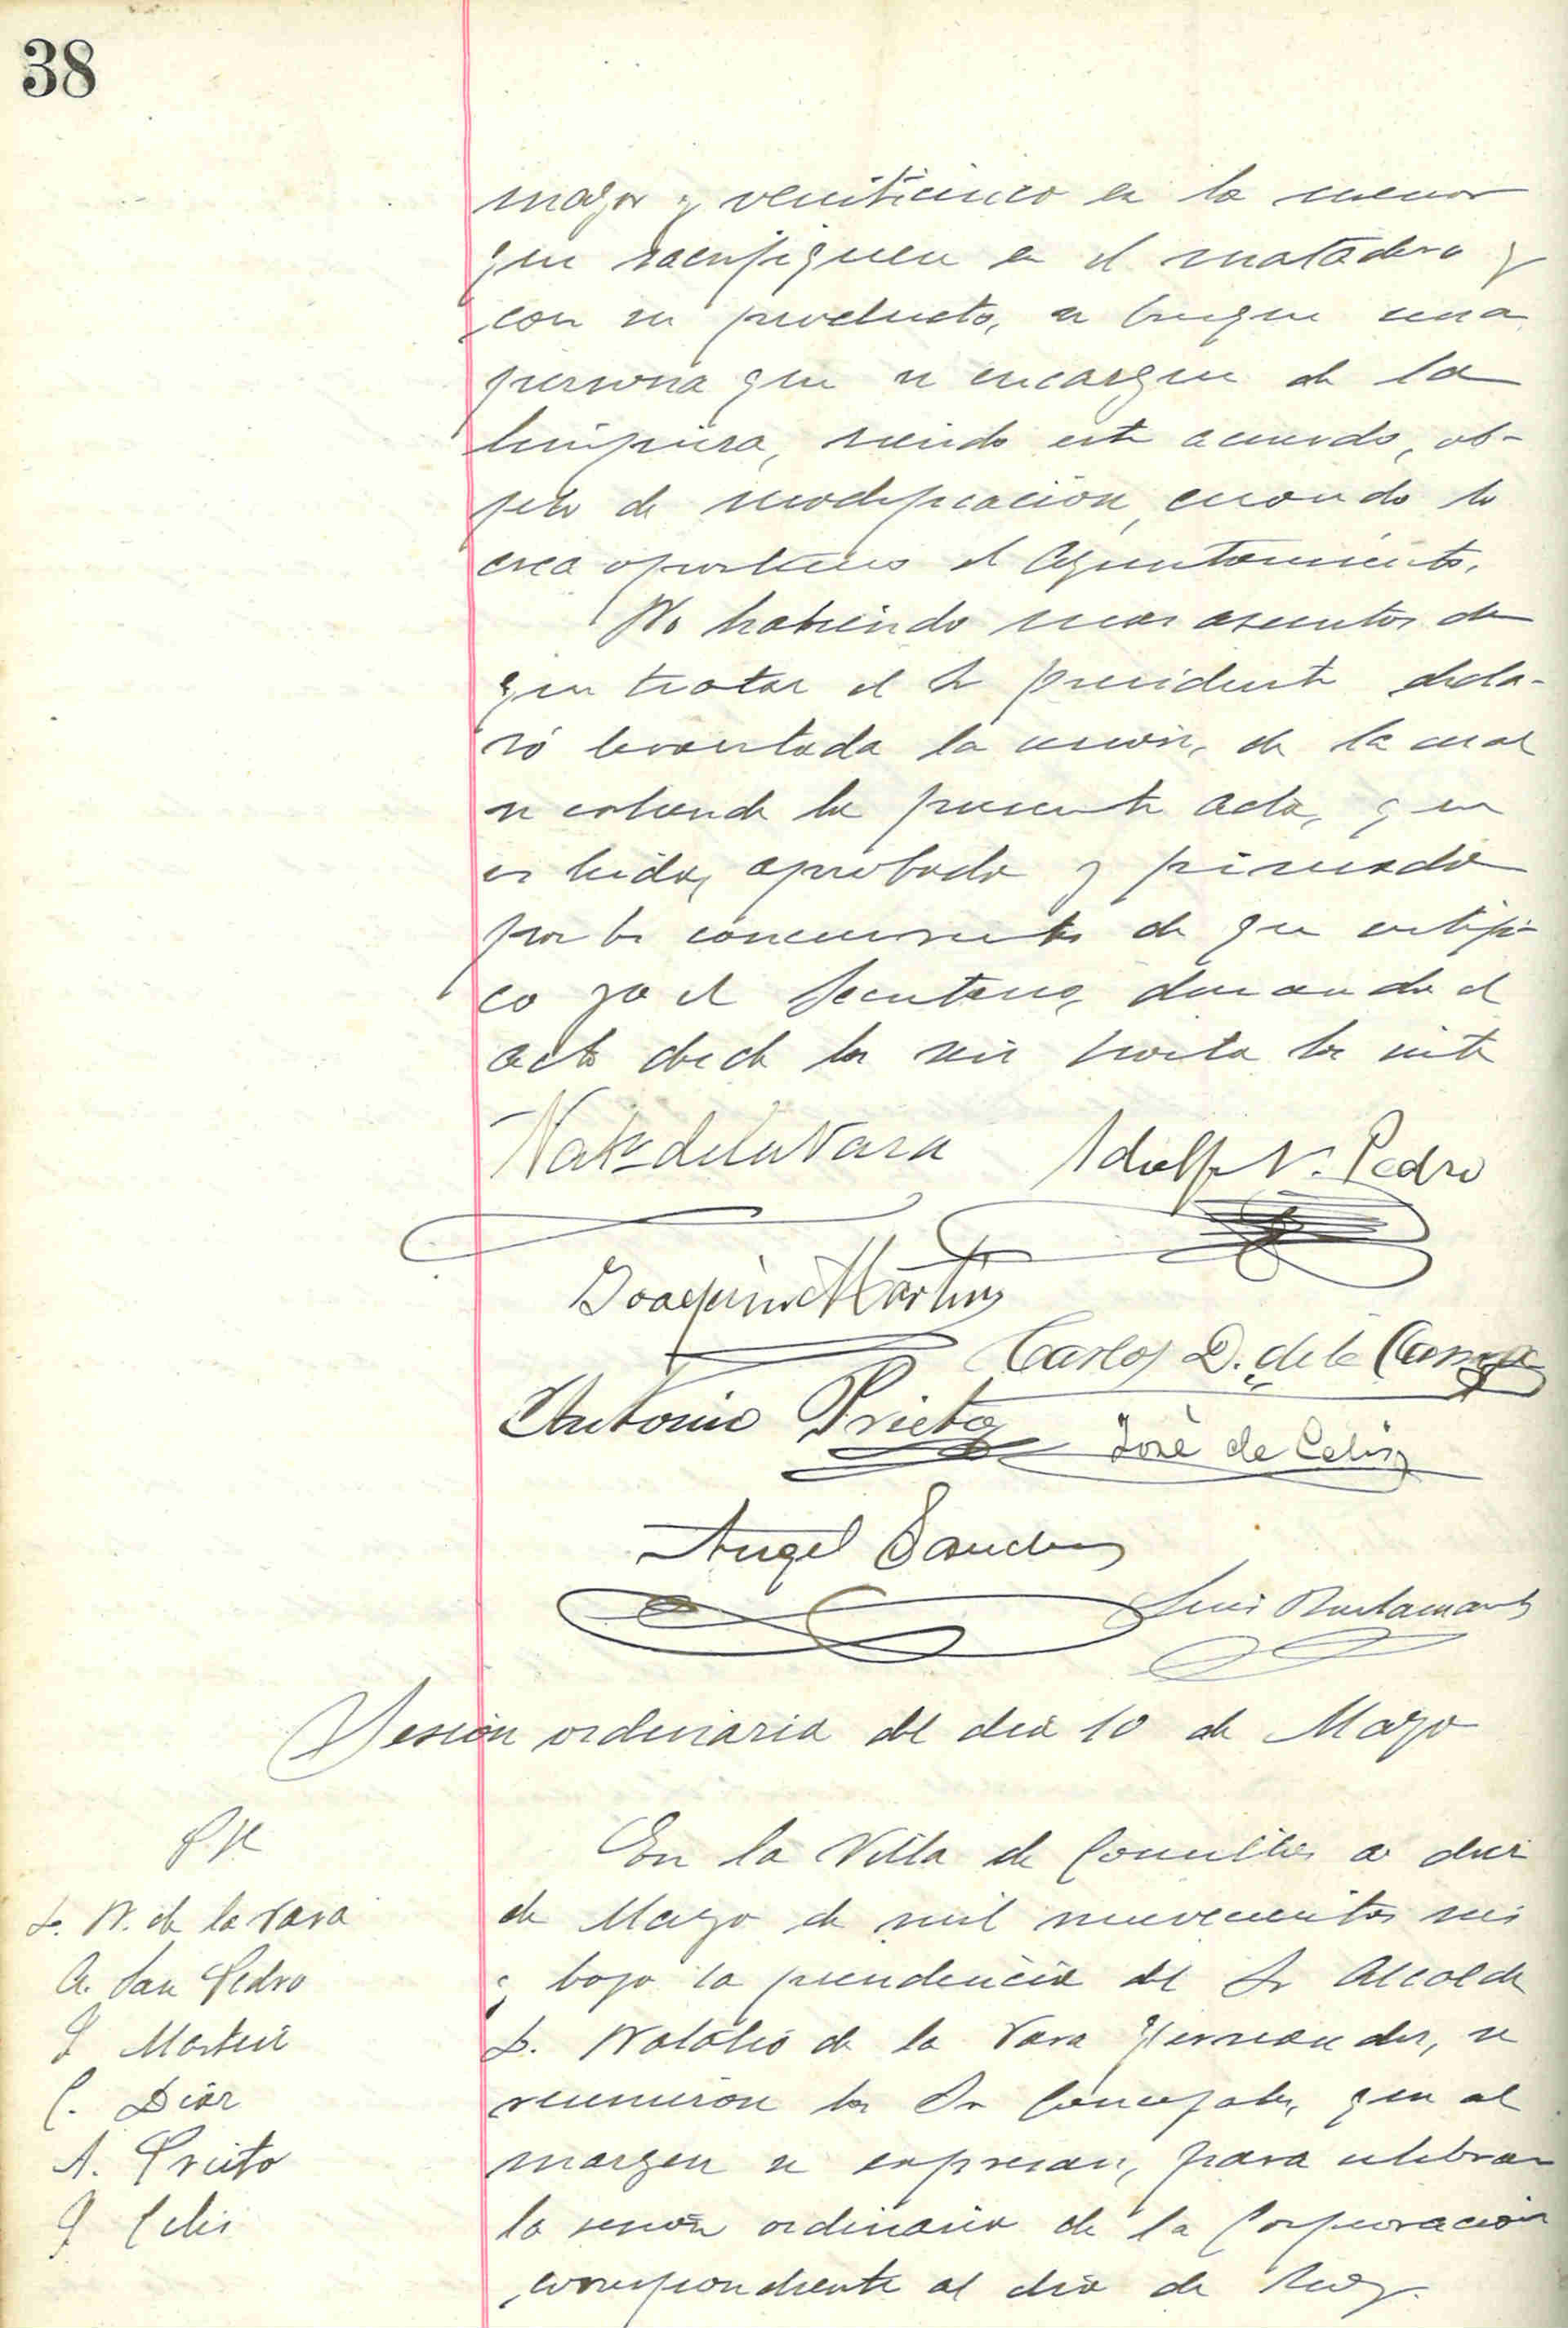 38
mayor y veinticinco en la menor
que sacrifiquen en el matadero y
con su producto, se busque una
persona que se encargue de la
limpieza, siendo este acuerdo, ob-
jeto de modificación, cuando lo
crea oportuno el Ayuntamiento.
No habiendo mas asuntos de
que tratar el Sr presidente decla-
ró levantada la sesión, de la cual
se extiende la presente acta, que
es leida, aprobada y firmada
por los concurrentes de que certifi-
co yo el Secretario, durando el
acto desde las seis hasta las siete
Nat.º de la Vara Adolfo S. Pedro
Joaquin Martin
Carlos D. de la Campa
Antonio Prieto José de Celis
Angel Sanchez
Luis Bustamante
Sesión ordinaria del dia 10 de Mayo
En la Villa de Comillas a diez
de Mayo de mil novecientos seis
y bajo la presidencia del Sr Alcalde
D. Natalio de la Vara Hernandez, se
reunieron los Sres Concejales, que al
margen se expresan, para celebrar
la sesión ordinaria de la Corporación
correspondiente al dia de hoy.
D. N. de la Vara
A. San Pedro
J Martin
C. Diaz
A. Prieto
J Celis